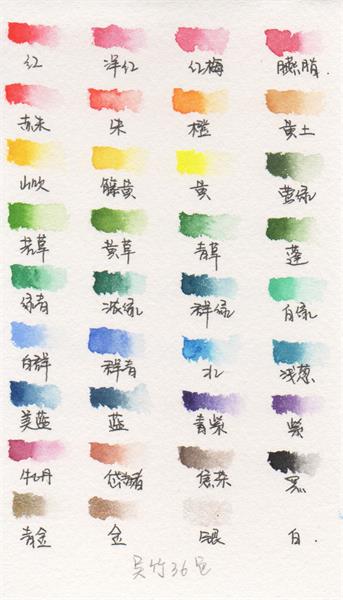 红 洋红 红梅 臙脂.
赤朱 朱 橙 黄土
山吹 藤黄 黄
若草 黄草 青草 蓬
绿青 浓绿 群绿 白绿
白群 群青 水 浅葱
美蓝 蓝 青紫 紫
牡丹 岱赭 焦茶 黑
青金 金 银 白.
吴竹36色